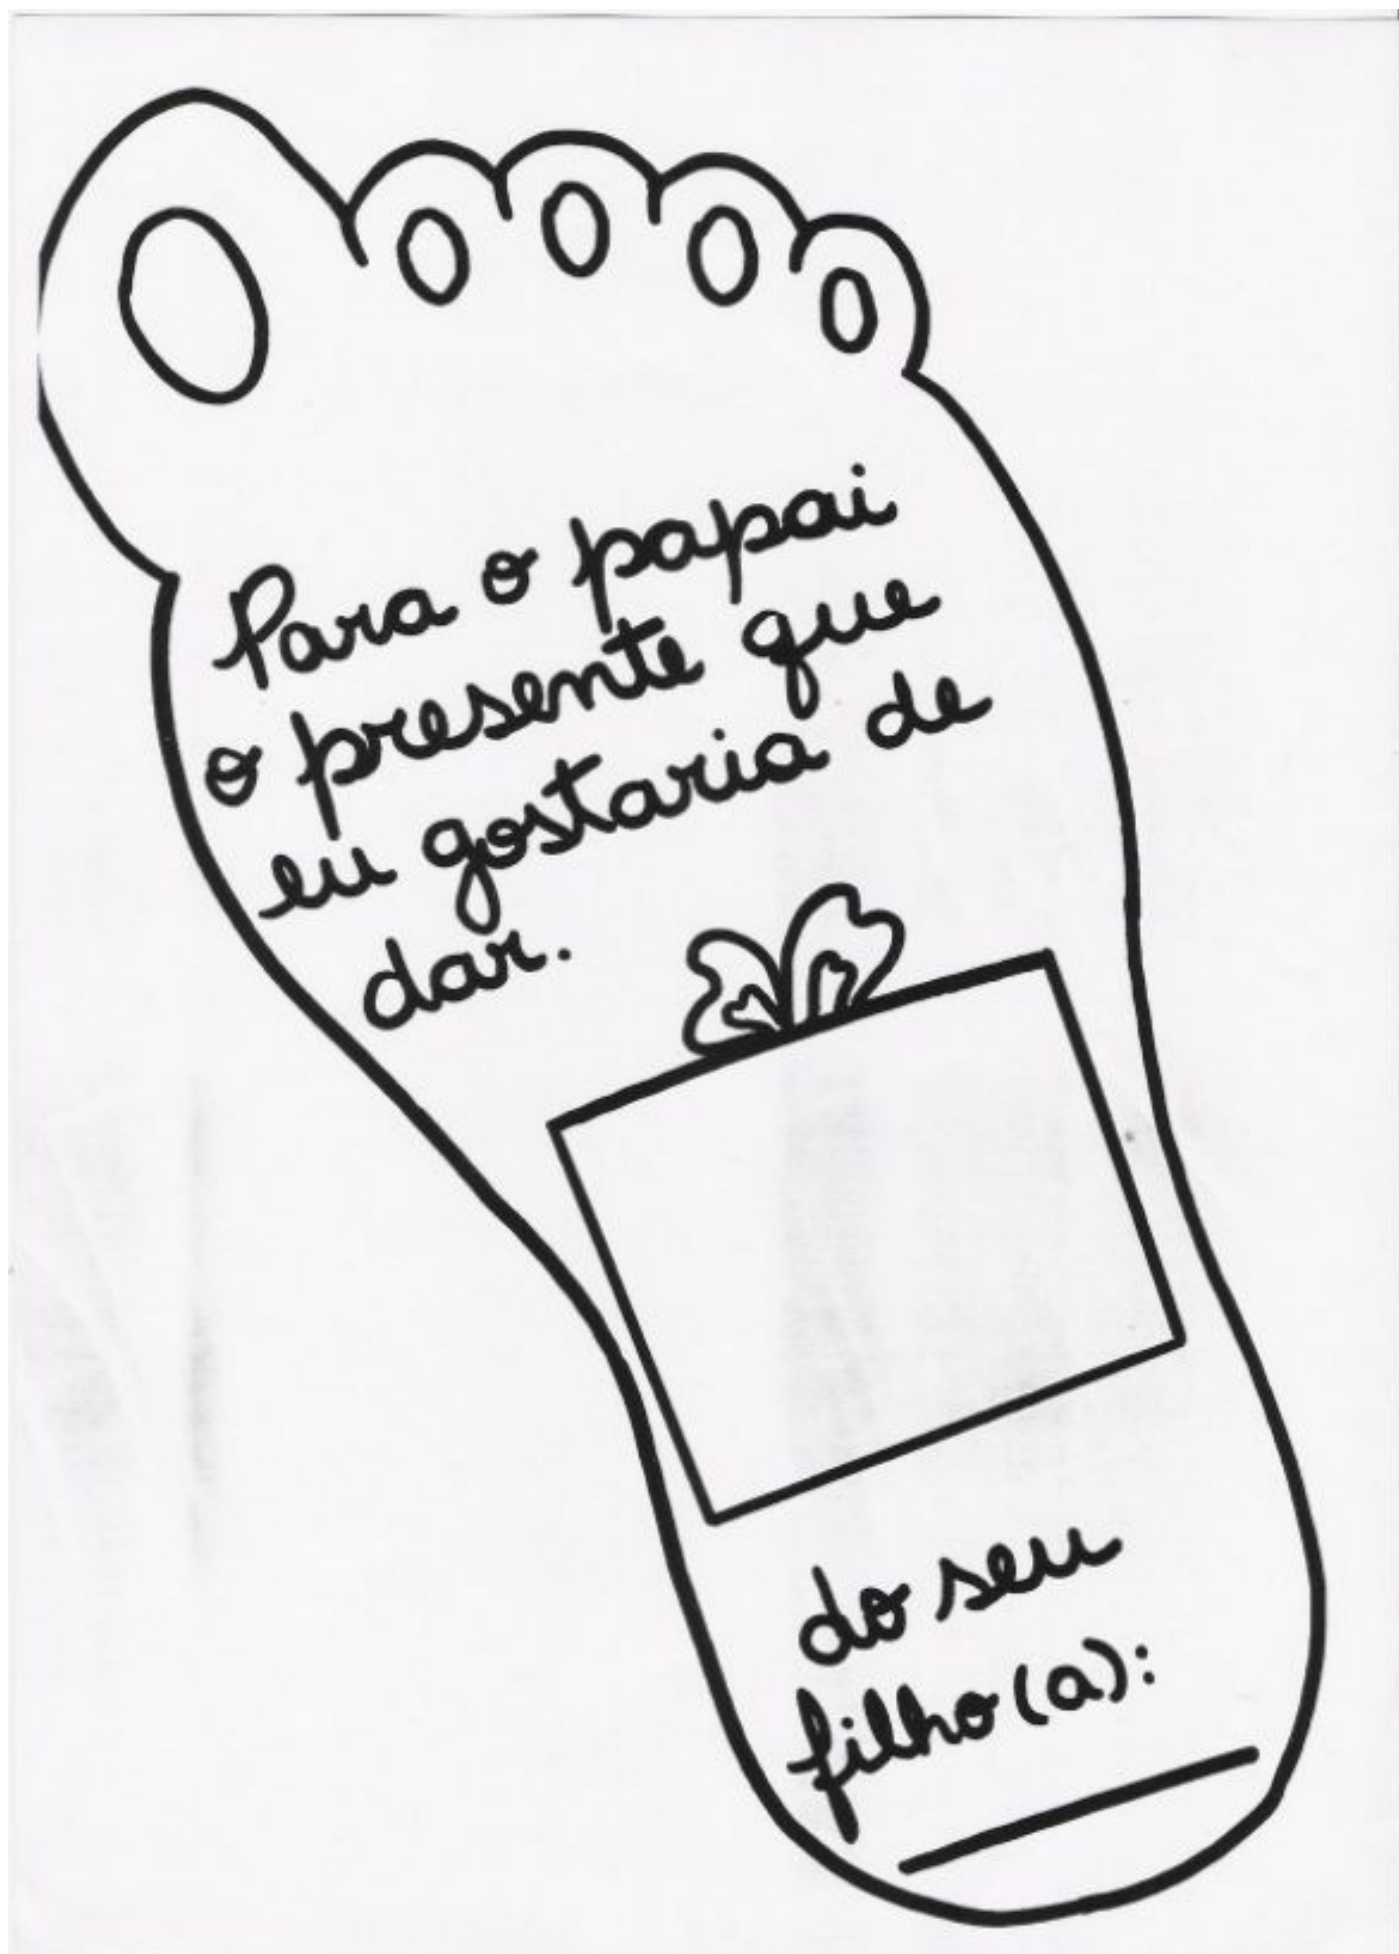 Para o papai
o presente que
eu gostaria de
dar.
do seu
filho(a):